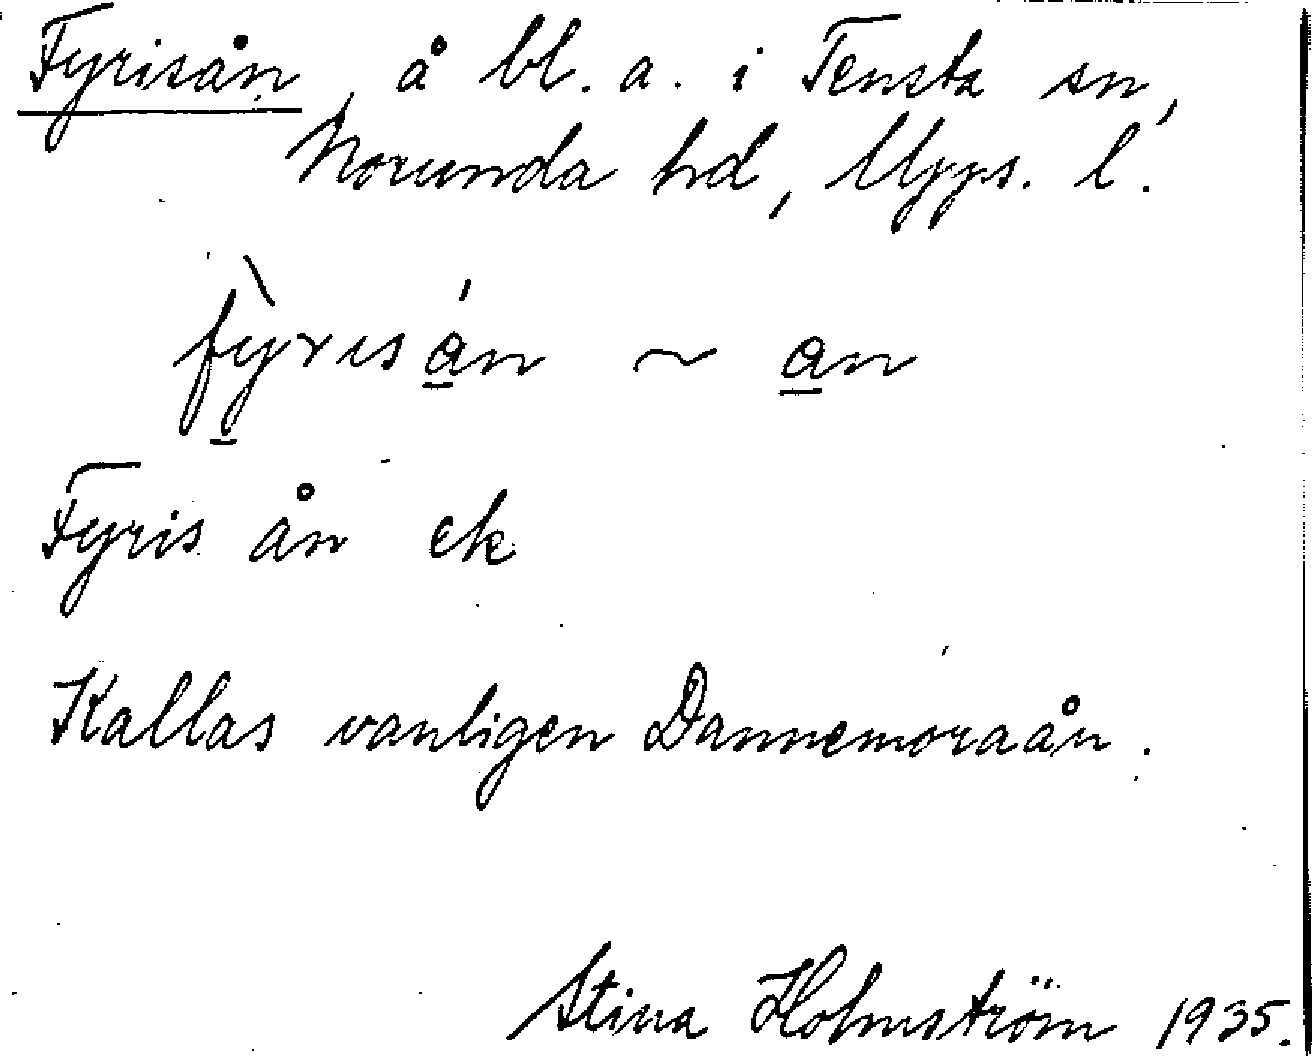 Fyrisån, å bl. a. i Tensta sn,
Norunda hd, Upps. l.
fỳ̲rɩsá̲n ~ a̲n
Fyris ån ek
Kallas vanligen Dannemoraån.
Stina Holmström 1935.